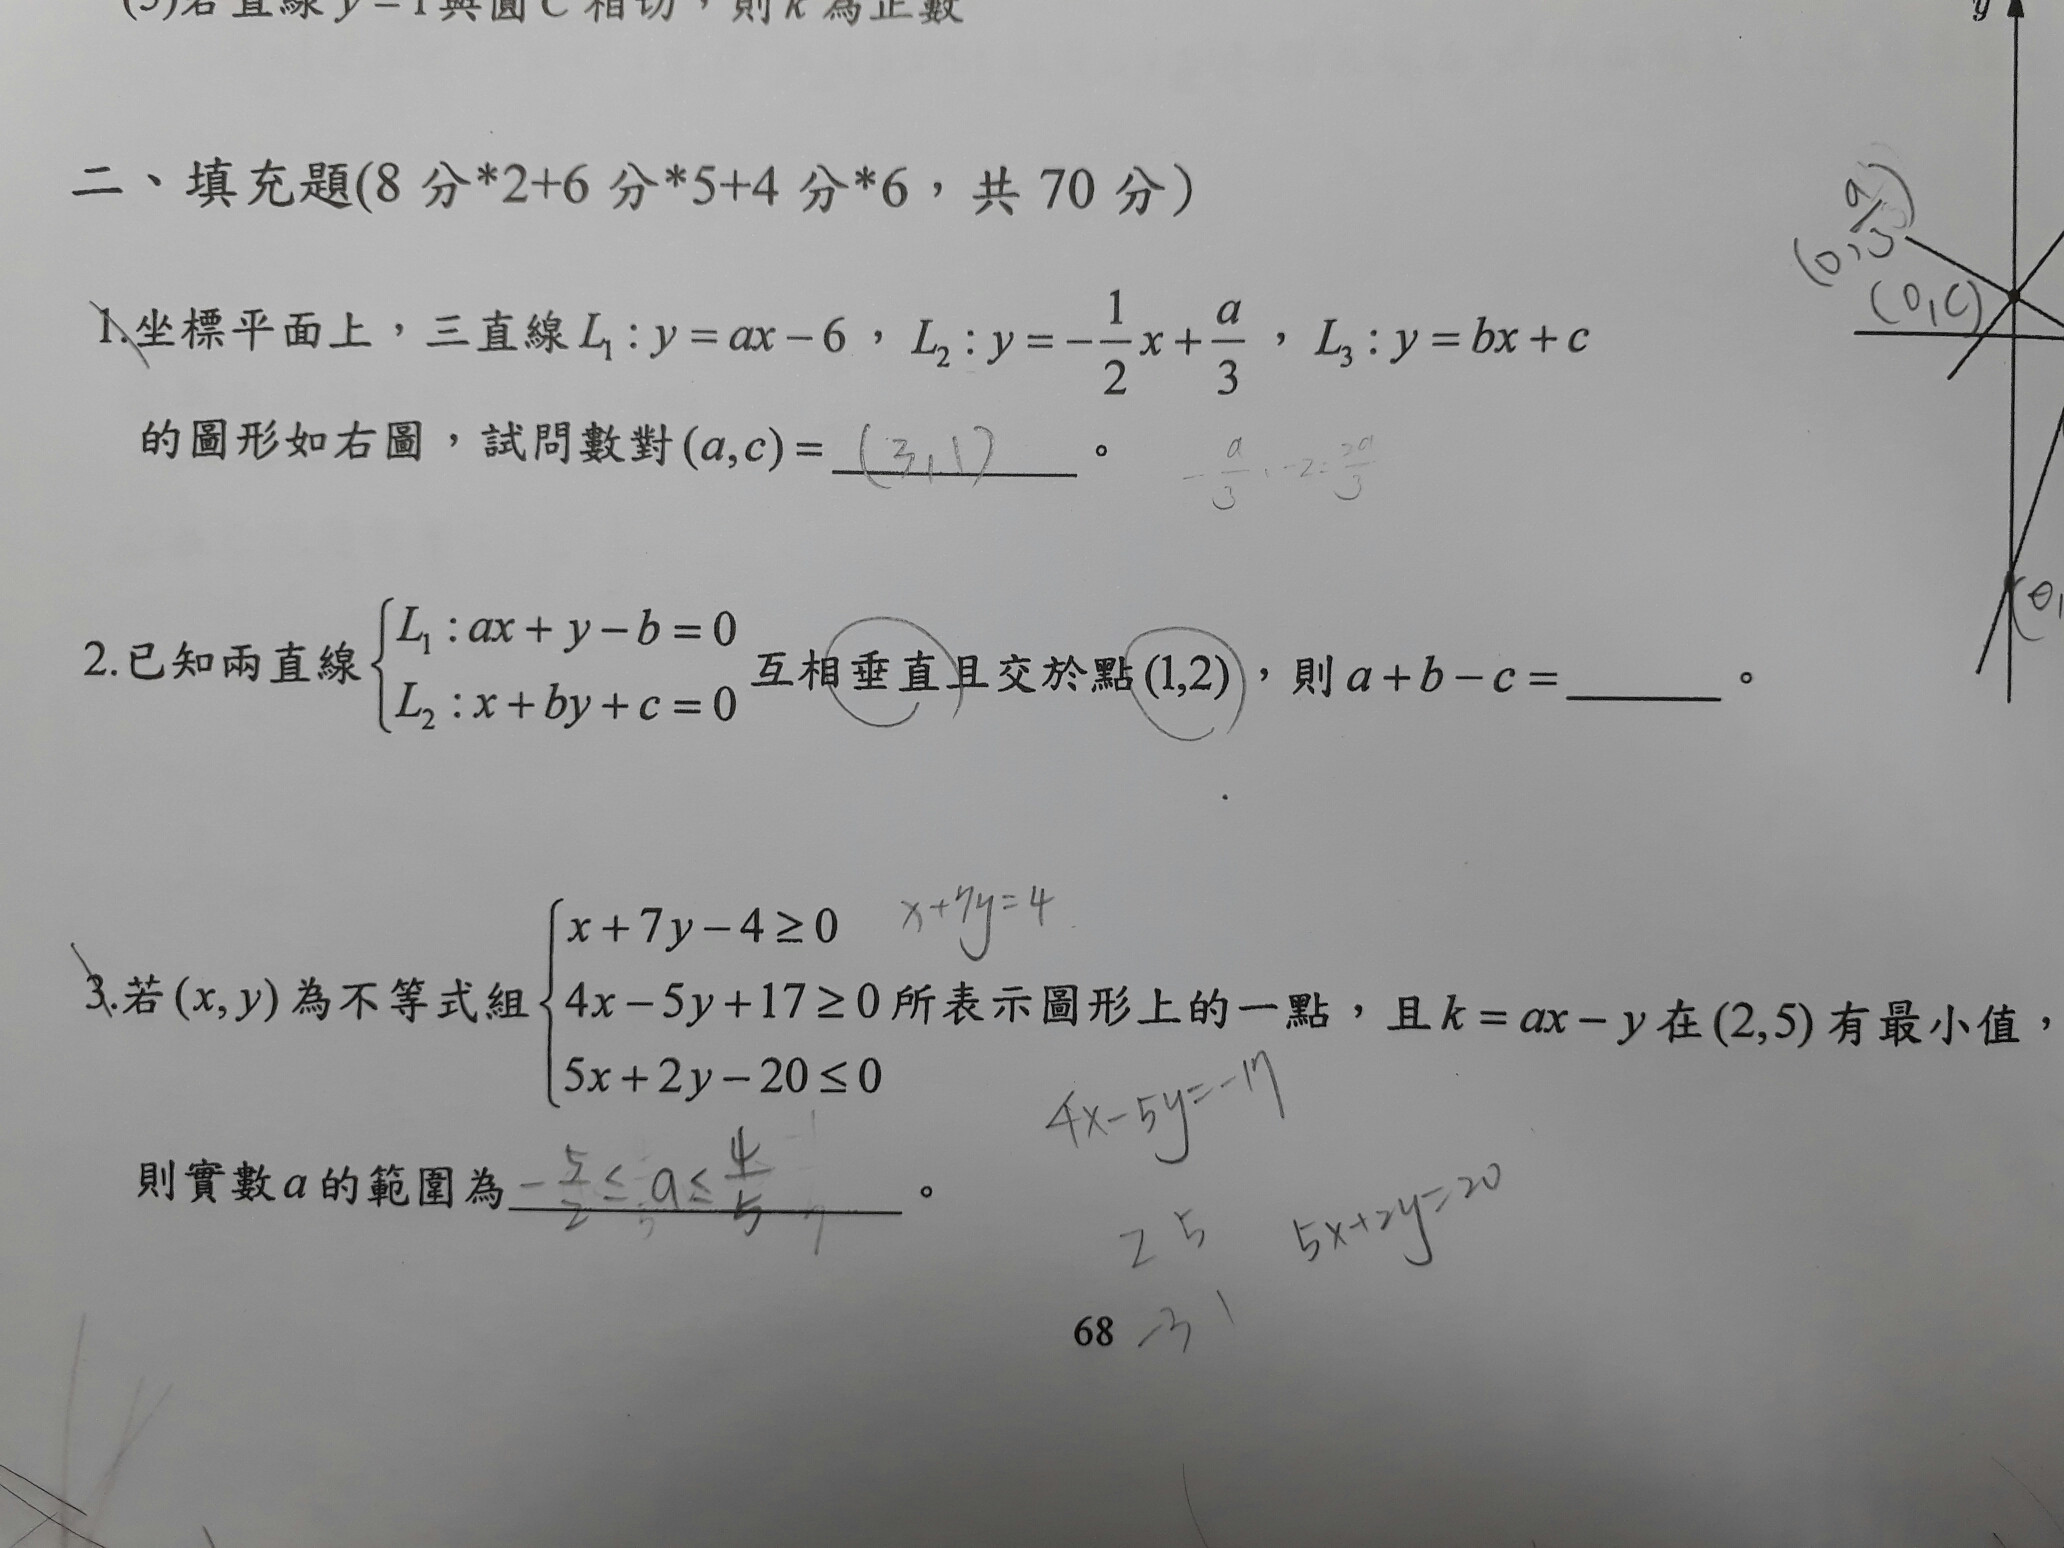 (5)若直線 y=1與圓C 相切，則k為正數
y
二、填充題(8 分*2+6 分*5+4 分*6，共 70 分)
(0, a/3)
(0,C)
1.坐標平面上，三直線 L₁ : y = ax − 6，L₂ : y = −1/2 x + a/3，L₃ : y = bx + c
的圖形如右圖，試問數對(a,c) = (3,1)。
-a/3 · -2 = 2a/3
(0,
2.已知兩直線 { L₁ : ax + y − b = 0
L₂ : x + by + c = 0 互相垂直且交於點(1,2)，則 a + b − c = ______。
3.若(x, y)為不等式組 { x + 7y − 4 ≥ 0 x+7y=4
4x − 5y + 17 ≥ 0 所表示圖形上的一點，且 k = ax − y 在(2,5)有最小值，
5x + 2y − 20 ≤ 0
4x-5y=-17
則實數 a 的範圍為 -5/2 ≤ a ≤ 4/5。
2 5
5x+2y=20
68
-3 1